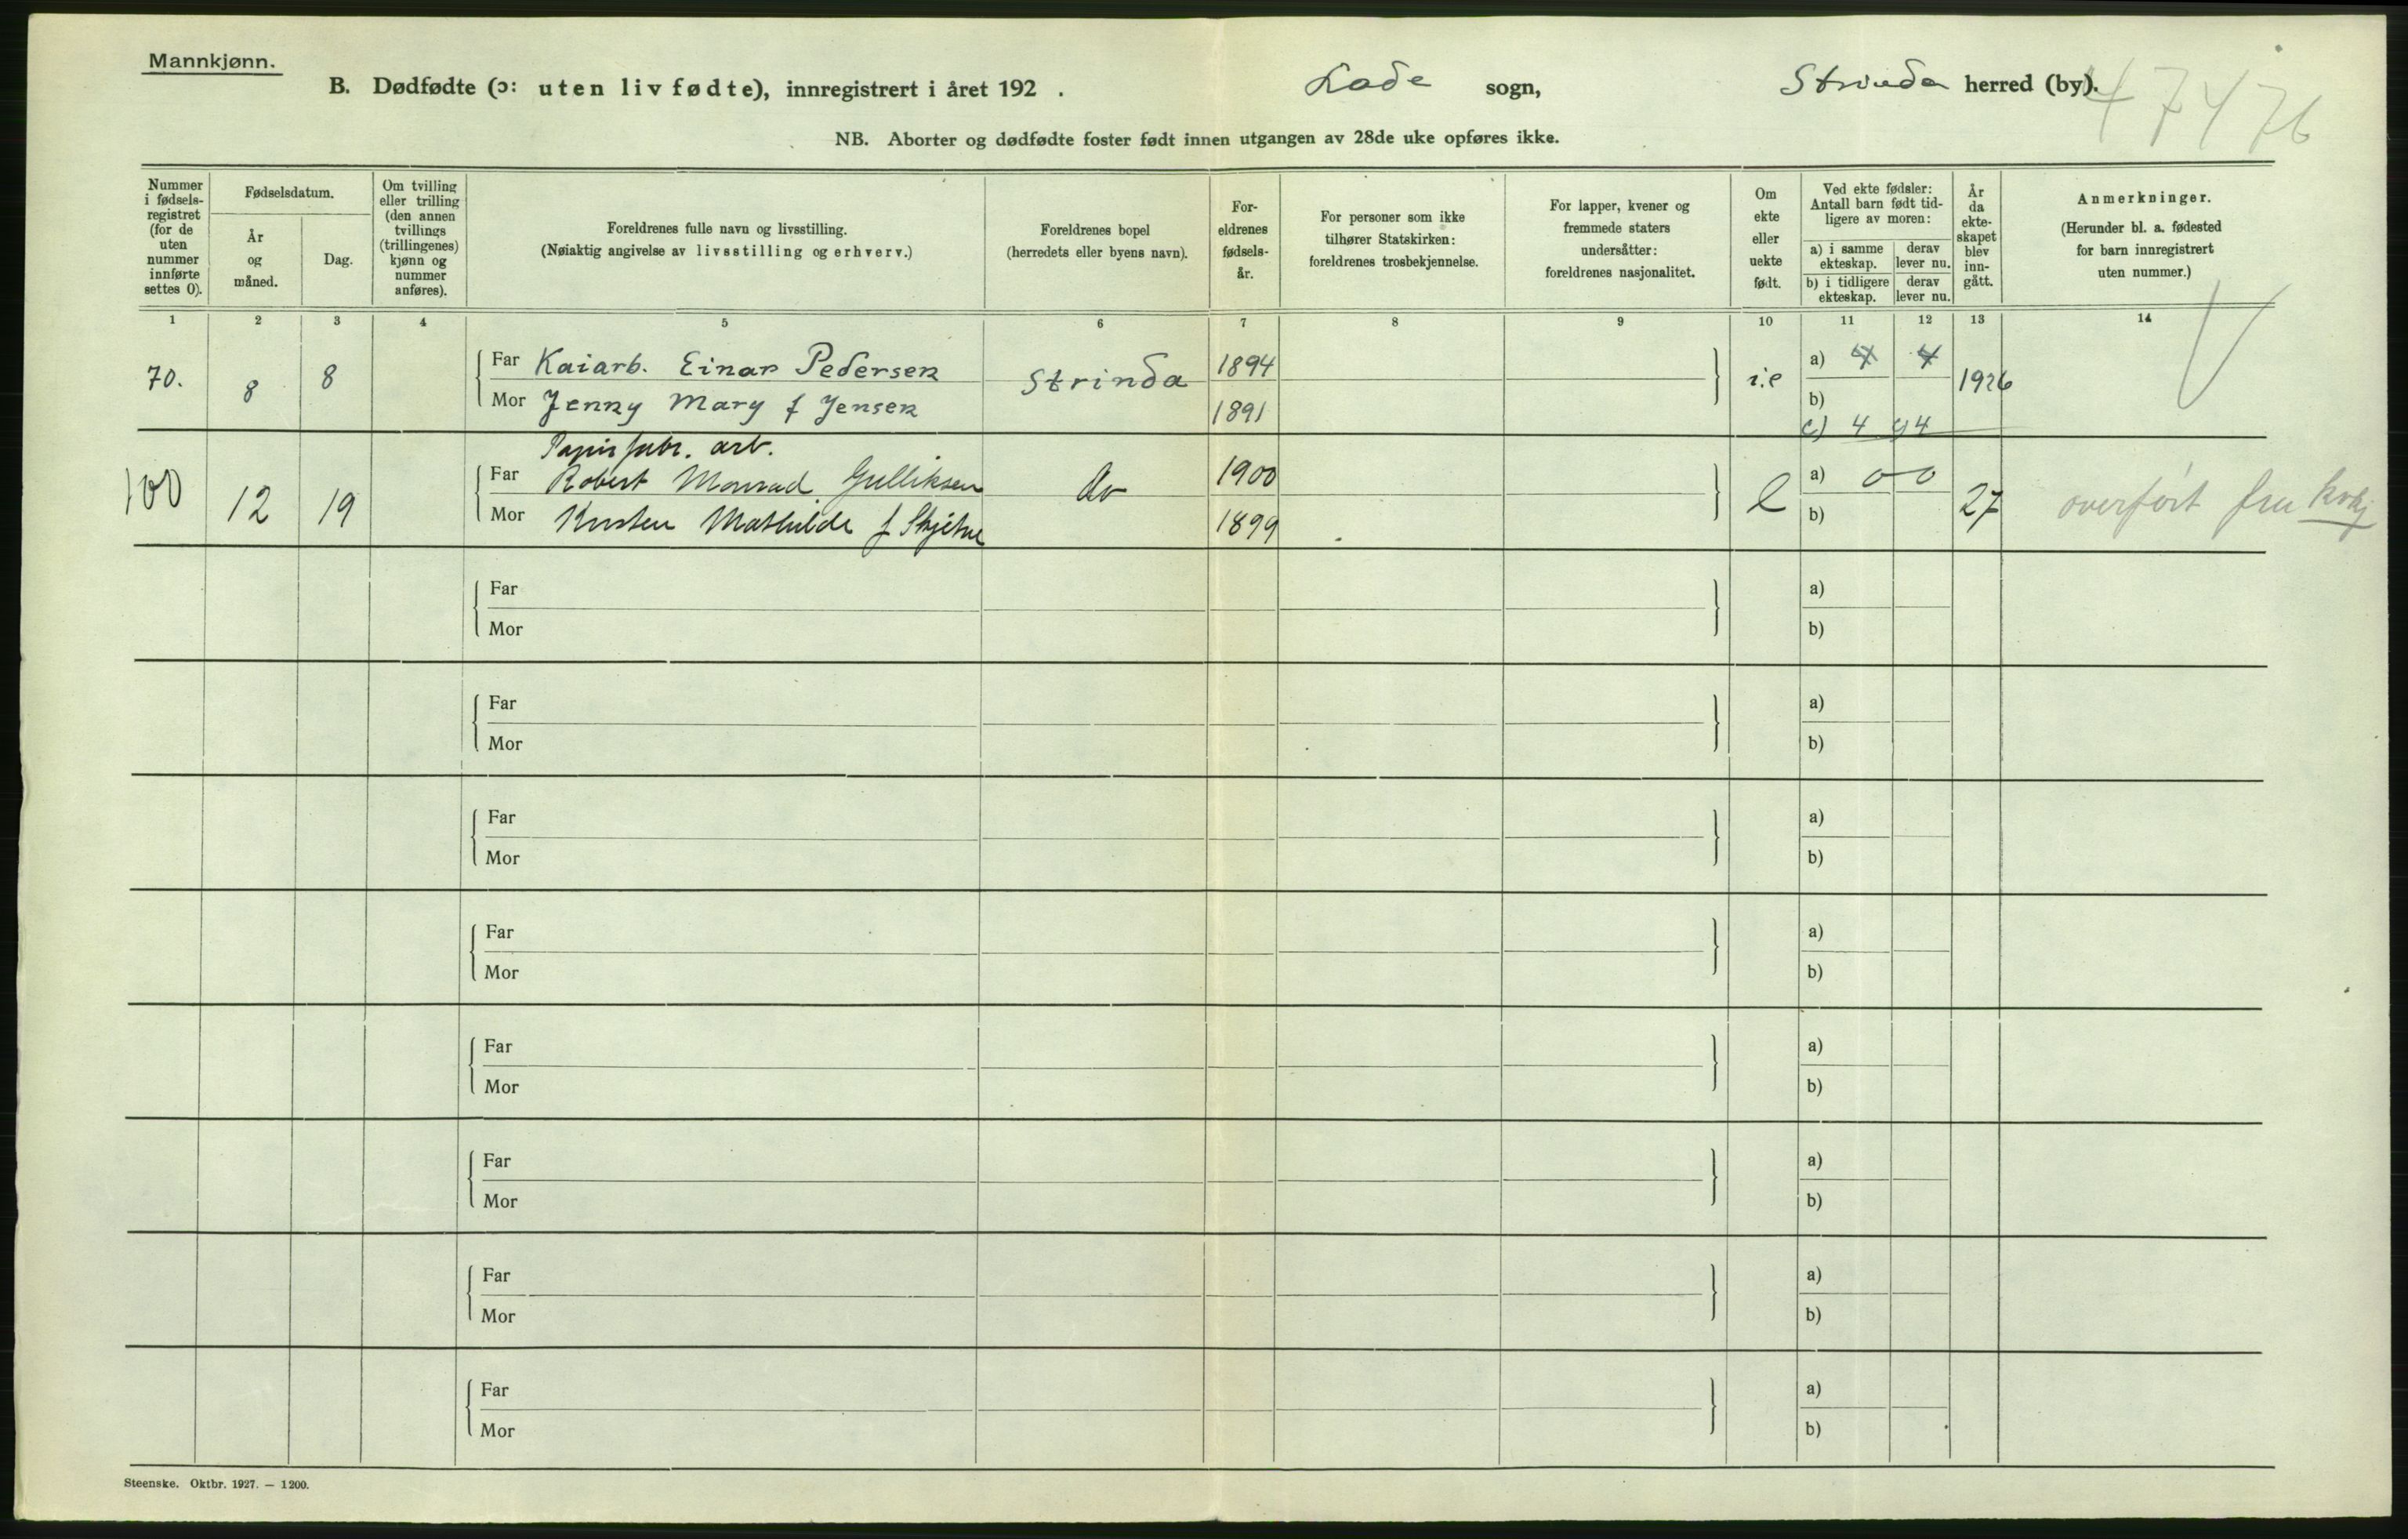 Mannkjønn.
B. Dødfødte (ɔ: uten liv fødte), innregistrert i året 192 . Lade sogn, Strinda herred (by).
47476
NB. Aborter og dødfødte foster født innen utgangen av 28de uke opføres ikke.
Nummer i fødsels-registret (for de uten nummer innførte settes 0).
Fødselsdatum.
År og måned.
Dag.
Om tvilling eller trilling (den annen tvillings (trillingenes) kjønn og nummer anføres).
Foreldrenes fulle navn og livsstilling.
(Nøiaktig angivelse av livsstilling og erhverv.)
Foreldrenes bopel
(herredets eller byens navn).
For-eldrenes fødsels-år.
For personer som ikke tilhører Statskirken: foreldrenes trosbekjennelse.
For lapper, kvener og fremmede staters undersåtter: foreldrenes nasjonalitet.
Om ekte eller uekte født.
Ved ekte fødsler: Antall barn født tid-ligere av moren:
a) i samme ekteskap.
derav lever nu.
b) i tidligere ekteskap.
derav lever nu.
År da ekte-skapet blev inn-gått.
Anmerkninger.
(Herunder bl. a. fødested for barn innregistrert uten nummer.)
1 2 3 4 5 6 7 8 9 10 11 12 13 14
70. 8 8 Far Kaiarb. Einar Pedersen Strinda 1894 i.e a) 4 4 1926
Mor Jenny Mary f Jensen 1891 b)
c) 4 c) 4
Papirfabr. arb.
100 12 19 Far Robert Monrad Gulliksen do 1900 e a) 0 0 27 overført fra kvkj
Mor Kirsten Mathilde f Skjetne 1899 b)
Far a)
Mor b)
Far a)
Mor b)
Far a)
Mor b)
Far a)
Mor b)
Far a)
Mor b)
Far a)
Mor b)
Far a)
Mor b)
Far a)
Mor b)
Steenske. Oktbr. 1927. — 1200.